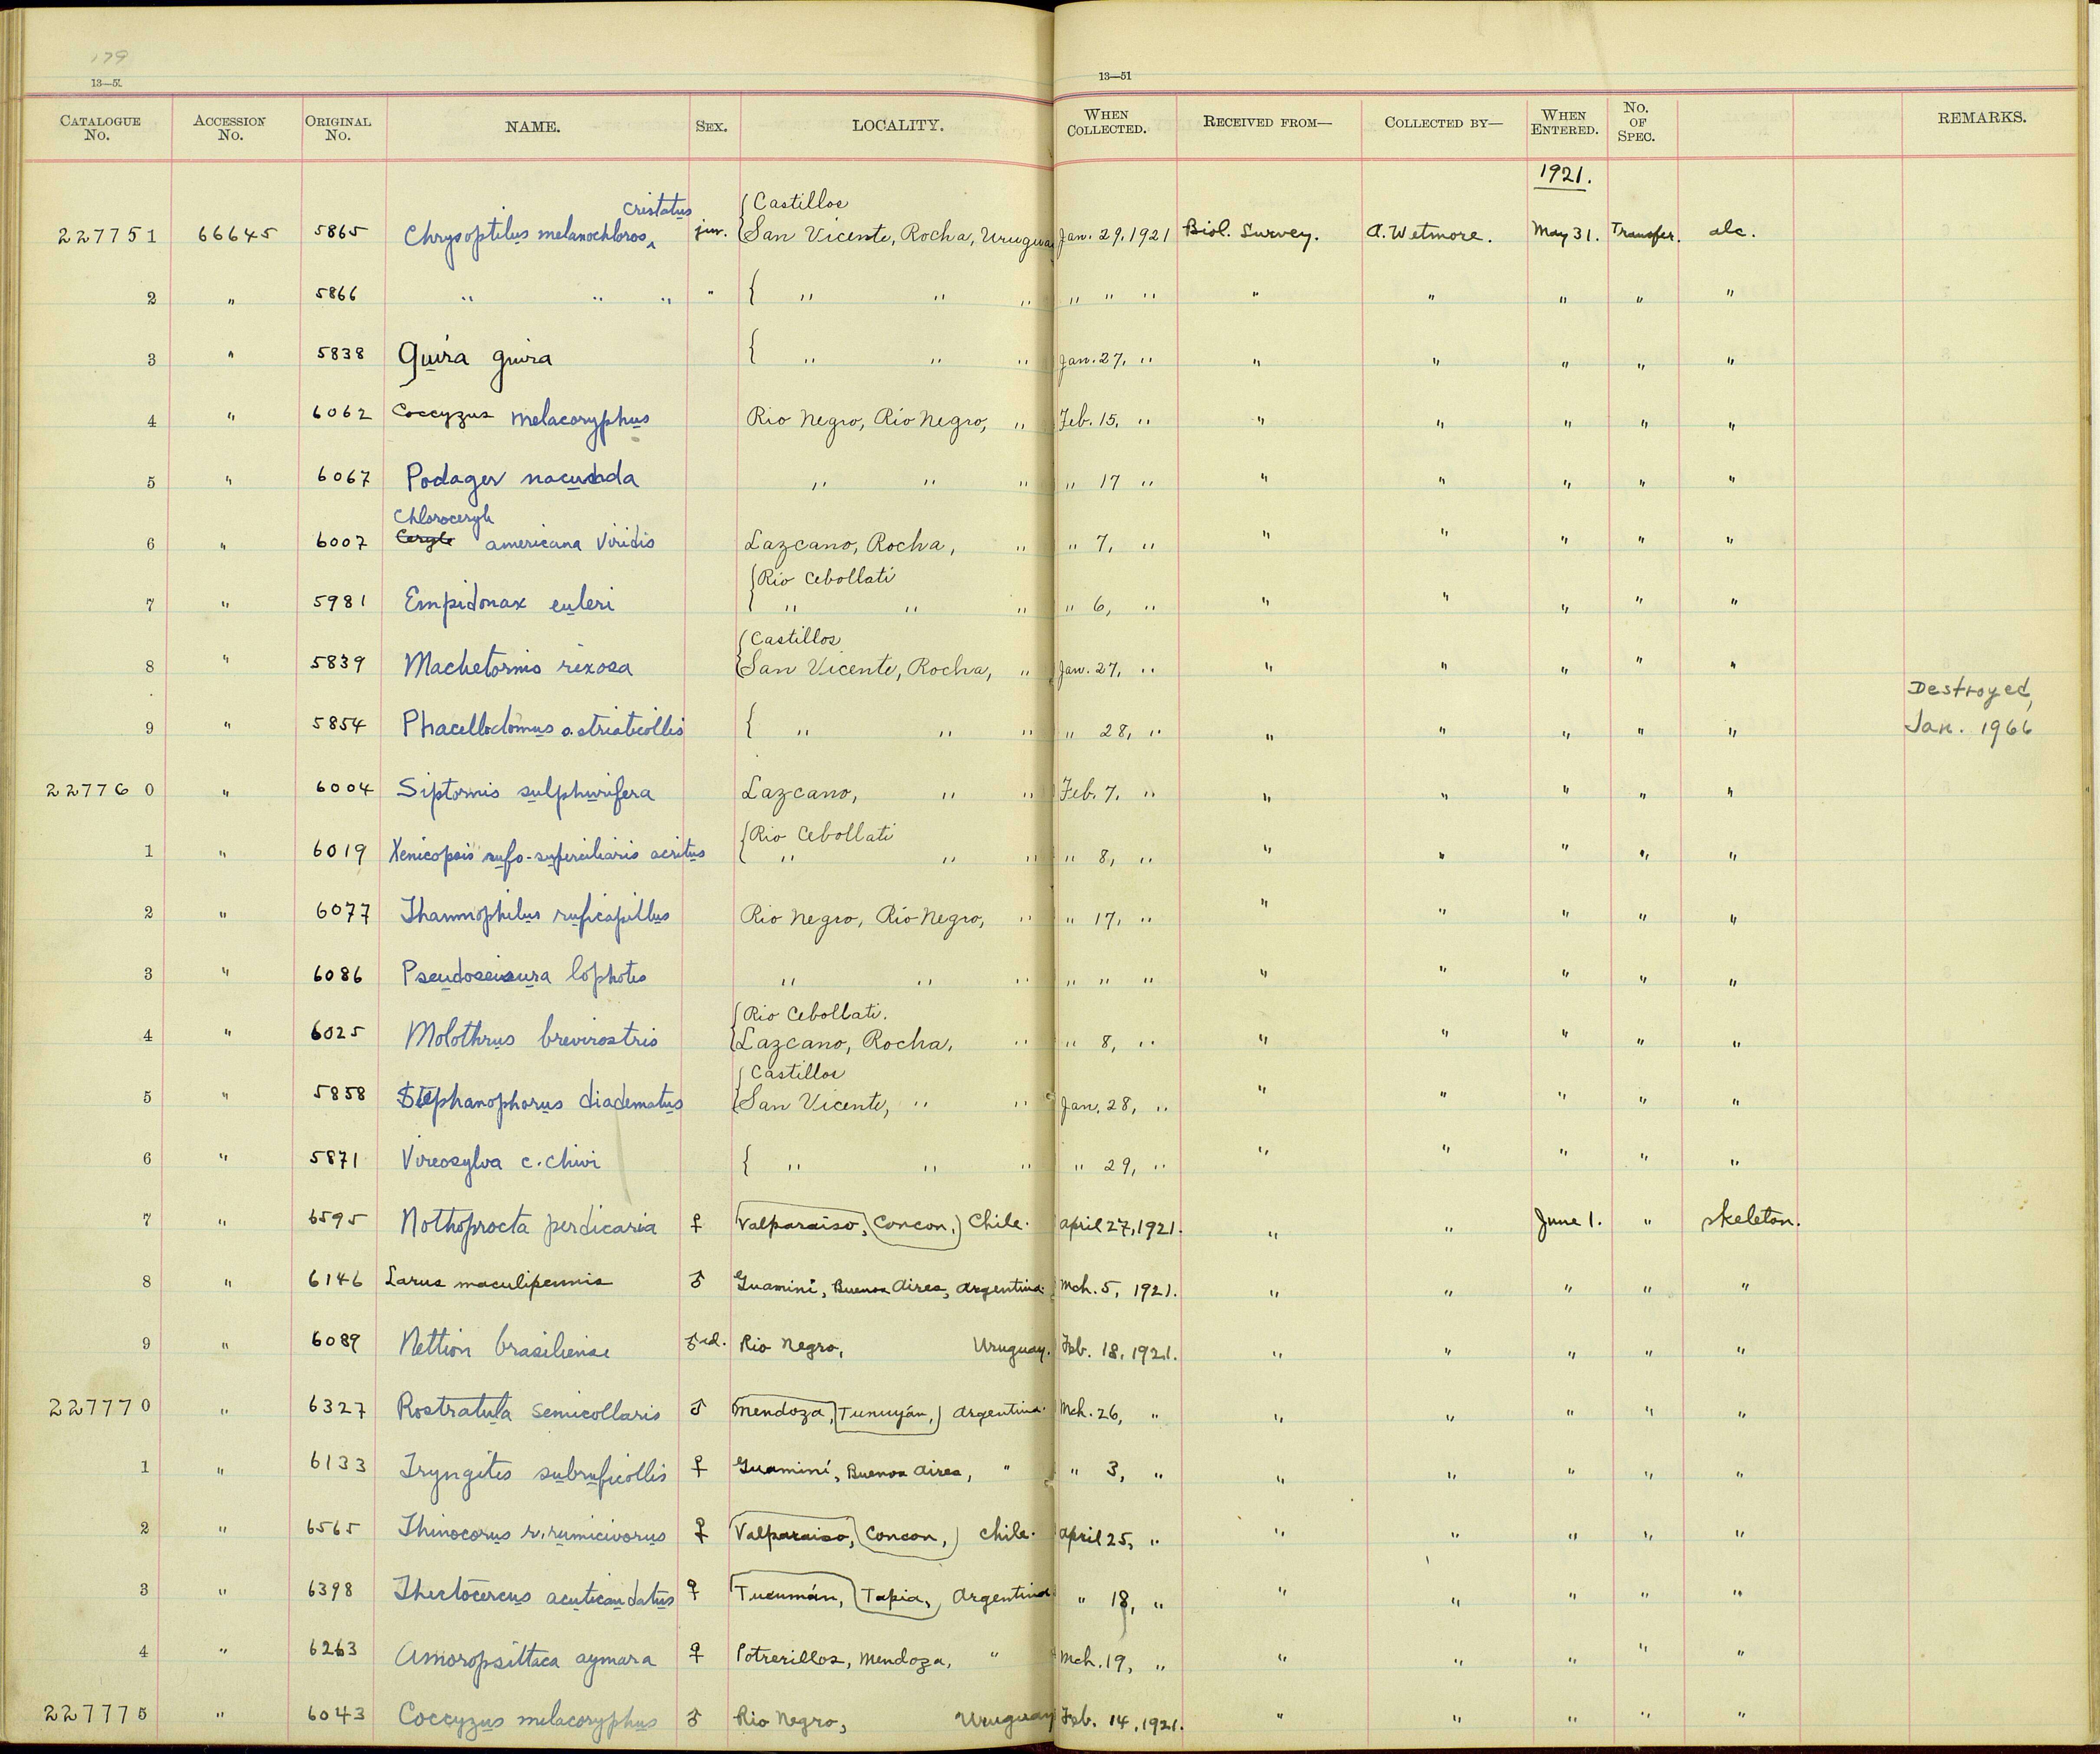 179
13—5
13—51
CATALOGUE No. ACCESSION No. ORIGINAL No. NAME. SEX. LOCALITY. WHEN COLLECTED. RECEIVED FROM— COLLECTED BY— WHEN ENTERED. No. OF SPEC. REMARKS.
1921.
cristatus { Castillos
227751 66645 5865 Chrysoptilus melanochloros ‸ juv. San Vicente, Rocha, Uruguay Jan. 29, 1921 Biol. Survey. A. Wetmore. May 31. Transfer. alc.
2 " 5866 " " " " { " " " " " " " " " " "
3 " 5838 Guira guira { " " " Jan. 27, " " " " " "
4 " 6062 Coccyzus melacoryphus Rio Negro, Rio Negro, " Feb. 15, " " " " " "
5 " 6067 Podager nacunda " " " " 17 " " " " " "
Chloroceryle
6 " 6007 Ceryle americana viridis Lazcano, Rocha, " " 7, " " " " " "
{ Rio Cebollati
7 " 5981 Empidonax euleri " " " " 6, " " " " " "
{ Castillos
8 " 5839 Machetornis rixosa San Vicente, Rocha, " Jan. 27, " " " " " "
Destroyed,
9 " 5854 Phacellodomus s. striaticollis { " " " " 28, " " " " " " Jan. 1966
227760 " 6004 Siptornis sulphurifera Lazcano, " " Feb. 7, " " " " " "
{ Rio Cebollati
1 " 6019 Xenicopsis rufo-superciliaris acritus " " " " 8, " " " " " "
2 " 6077 Thamnophilus ruficapillus Rio Negro, Rio Negro, " " 17, " " " " " "
3 " 6086 Pseudoseisura lophotes " " " " " " " " " " "
{ Rio Cebollati.
4 " 6025 Molothrus brevirostris Lazcano, Rocha, " " 8, " " " " " "
{ Castillos
5 " 5858 Stephanophorus diadematus San Vicente, " " Jan. 28, " " " " " "
6 " 5871 Vireosylva c. chivi { " " " " 29, " " " " " "
7 " 6595 Nothoprocta perdicaria ♀ Valparaiso, (Concon,) Chile. April 27, 1921. " " June 1. " skeleton.
8 " 6146 Larus maculipennis ♂ Guamini, Buenos Aires, Argentina. Mch. 5, 1921. " " " " "
9 " 6089 Nettion brasiliense ♂ ad. Rio Negro, Uruguay. Feb. 18, 1921. " " " " "
227770 " 6327 Rostratula semicollaris ♂ Mendoza, (Tunuyán,) Argentina. Mch. 26, " " " " " "
1 " 6133 Tryngites subruficollis ♀ Guamini, Buenos Aires, " " 3, " " " " " "
2 " 6565 Thinocorus r. rumicivorus ♀ Valparaiso, (Concon,) Chile. April 25, " " " " " "
3 " 6398 Thectocercus acuticaudatus ♀ Tucumán, (Tapia, Argentina " 18, " " " " " "
4 " 6263 Amoropsittaca aymara ♀ Potrerillos, Mendoza, " Mch. 19, " " " " " "
227775 " 6043 Coccyzus melacoryphus ♂ Rio Negro, Uruguay Feb. 14, 1921. " " " " "